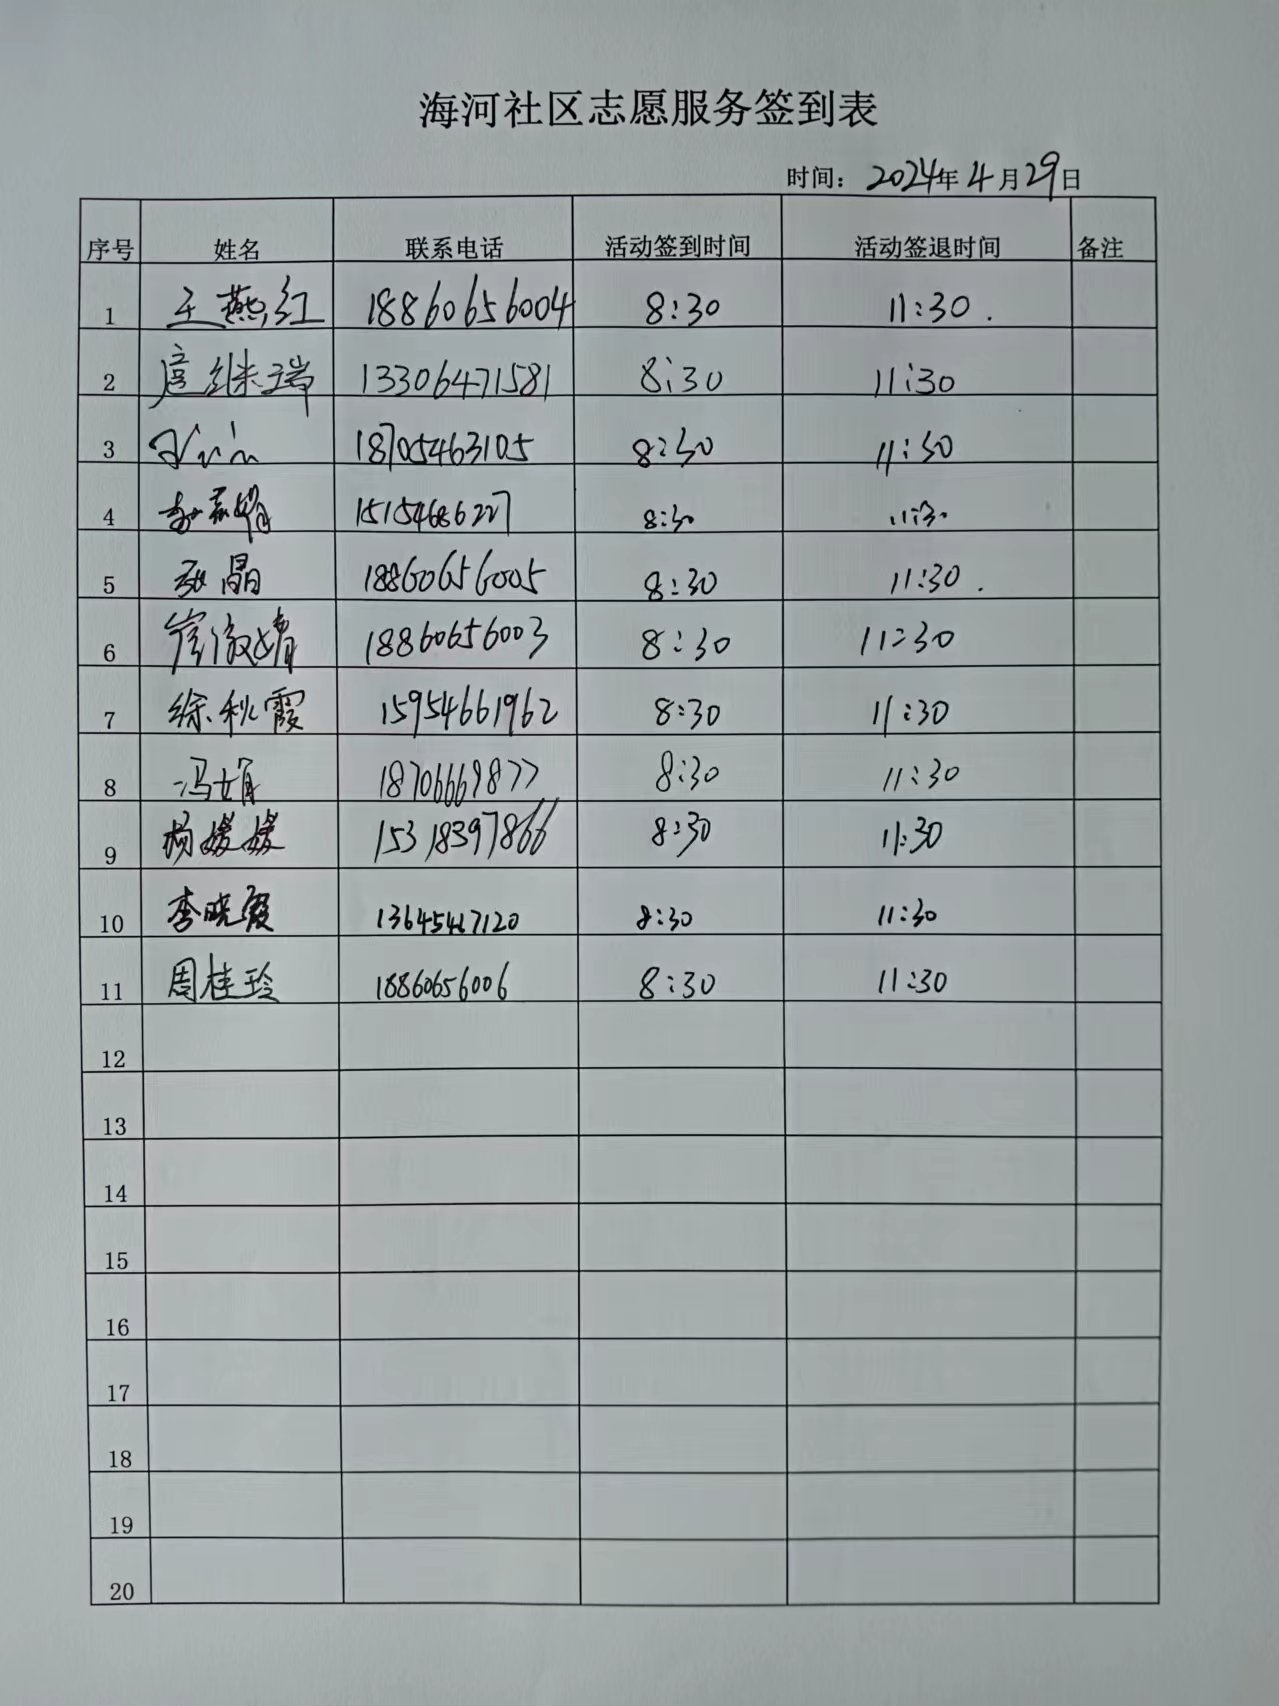 海河社区志愿服务签到表
时间：2024年4月29日
序号 姓名 联系电话 活动签到时间 活动签退时间 备注
1 王燕红 18860656004 8:30 11:30.
2 扈继瑞 13306471581 8:30 11:30
3 18705463105 8:30 11:30
4 15154686227 8:30 11:30
5 张晶 18860656005 8:30 11:30.
6 崔俊婧 18860656003 8:30 11:30
7 徐秋霞 15954661962 8:30 11:30
8 冯娟 18706669877 8:30 11:30
9 杨媛媛 15318397866 8:30 11:30
10 李晓霞 13645467120 8:30 11:30
11 周桂玲 18860656006 8:30 11:30
12
13
14
15
16
17
18
19
20